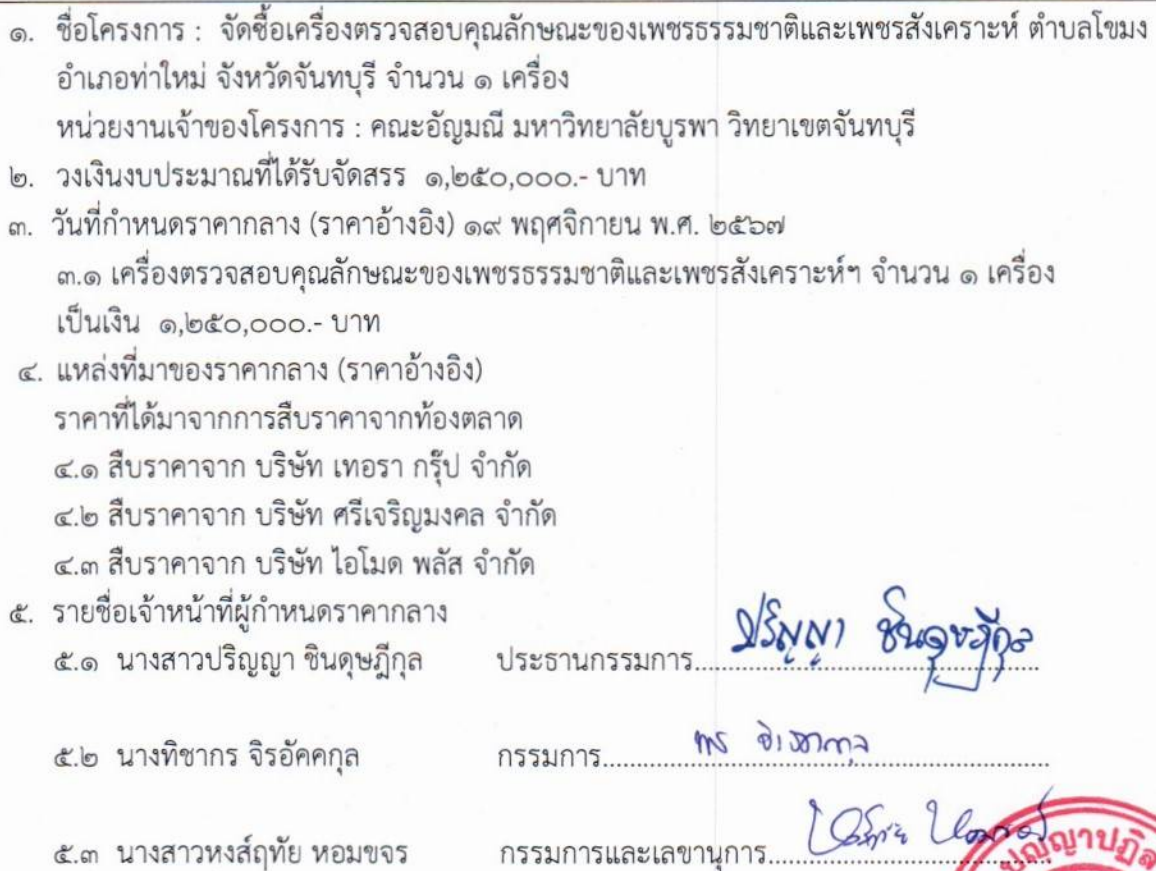 ๑. ชื่อโครงการ : จัดซื้อเครื่องตรวจสอบคุณลักษณะของเพชรธรรมชาติและเพชรสังเคราะห์ ตำบลโขมง
อำเภอท่าใหม่ จังหวัดจันทบุรี จำนวน ๑ เครื่อง
หน่วยงานเจ้าของโครงการ : คณะอัญมณี มหาวิทยาลัยบูรพา วิทยาเขตจันทบุรี
๒. วงเงินงบประมาณที่ได้รับจัดสรร ๑,๒๕๐,๐๐๐.- บาท
๓. วันที่กำหนดราคากลาง (ราคาอ้างอิง) ๑๙ พฤศจิกายน พ.ศ. ๒๕๖๗
๓.๑ เครื่องตรวจสอบคุณลักษณะของเพชรธรรมชาติและเพชรสังเคราะห์ฯ จำนวน ๑ เครื่อง
เป็นเงิน ๑,๒๕๐,๐๐๐.- บาท
๔. แหล่งที่มาของราคากลาง (ราคาอ้างอิง)
ราคาที่ได้มาจากการสืบราคาจากท้องตลาด
๔.๑ สืบราคาจาก บริษัท เทอรา กรุ๊ป จำกัด
๔.๒ สืบราคาจาก บริษัท ศรีเจริญมงคล จำกัด
๔.๓ สืบราคาจาก บริษัท ไอโมด พลัส จำกัด
๕. รายชื่อเจ้าหน้าที่ผู้กำหนดราคากลาง
๕.๑ นางสาวปริญญา ชินดุษฎีกุล ประธานกรรมการ.... ปริญญา ชินดุษฎีกุล
๕.๒ นางทิชากร จิรอัคคกุล กรรมการ....
๕.๓ นางสาวหงส์ฤทัย หอมขจร กรรมการและเลขานุการ....